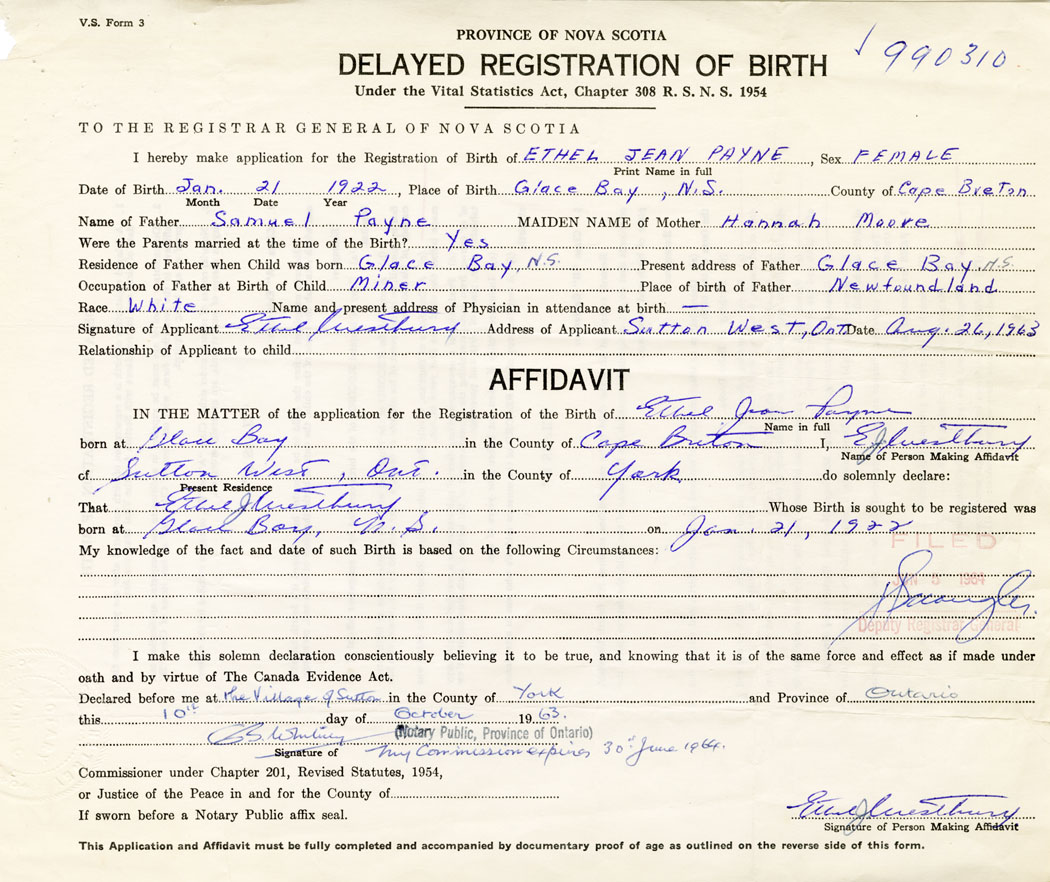 V.S. Form 3
PROVINCE OF NOVA SCOTIA
990310
DELAYED REGISTRATION OF BIRTH
Under the Vital Statistics Act, Chapter 308 R. S. N. S. 1954
TO THE REGISTRAR GENERAL OF NOVA SCOTIA
I hereby make application for the Registration of Birth of ETHEL JEAN PAYNE, Sex FEMALE
Print Name in full
Date of Birth Jan. 21 1922, Place of Birth Glace Bay, N.S. County of Cape Breton
Month Date Year
Name of Father Samuel Payne MAIDEN NAME of Mother Hannah Moore
Were the Parents married at the time of the Birth? Yes
Residence of Father when Child was born Glace Bay, N.S. Present address of Father Glace Bay, N.S.
Occupation of Father at Birth of Child Miner Place of birth of Father Newfoundland
Race White Name and present address of Physician in attendance at birth —
Signature of Applicant Ethel J Westbury Address of Applicant Sutton West, Ont Date Aug. 26, 1963
Relationship of Applicant to child
AFFIDAVIT
IN THE MATTER of the application for the Registration of the Birth of Ethel Jean Payne
Name in full
born at Glace Bay in the County of Cape Breton I, E J Westbury
Name of Person Making Affidavit
of Sutton West, Ont. in the County of York do solemnly declare:
Present Residence
That Ethel J Westbury Whose Birth is sought to be registered was
born at Glace Bay, N. S. on Jan. 21, 1922
My knowledge of the fact and date of such Birth is based on the following Circumstances:
FILED
JAN 8 1964
Deputy Registrar General
I make this solemn declaration conscientiously believing it to be true, and knowing that it is of the same force and effect as if made under
oath and by virtue of The Canada Evidence Act.
Declared before me at the Village of Sutton in the County of York and Province of Ontario
this 10th day of October 1963.
(Notary Public, Province of Ontario)
Signature of My Commission expires 30th June 1964.
Commissioner under Chapter 201, Revised Statutes, 1954,
or Justice of the Peace in and for the County of
If sworn before a Notary Public affix seal.
Ethel J Westbury
Signature of Person Making Affidavit
This Application and Affidavit must be fully completed and accompanied by documentary proof of age as outlined on the reverse side of this form.